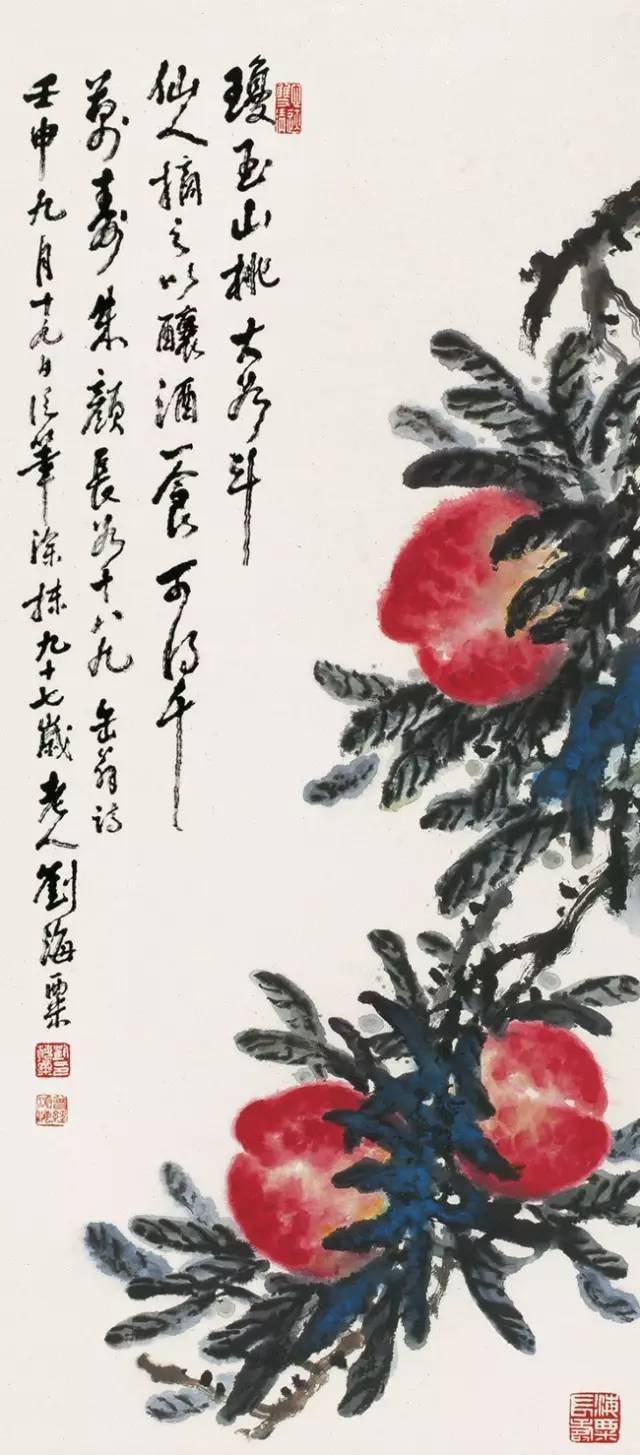 瓊玉山桃大如斗
仙人摘之以釀酒一食可得千
萬壽朱顏長如十八九 缶翁詩
壬申九月十九日信筆塗抹九十七歲老人劉海粟
海粟長壽